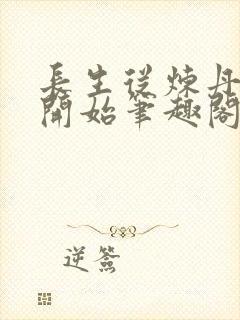 長生從煉丹
開始筆趣閣
逆簽